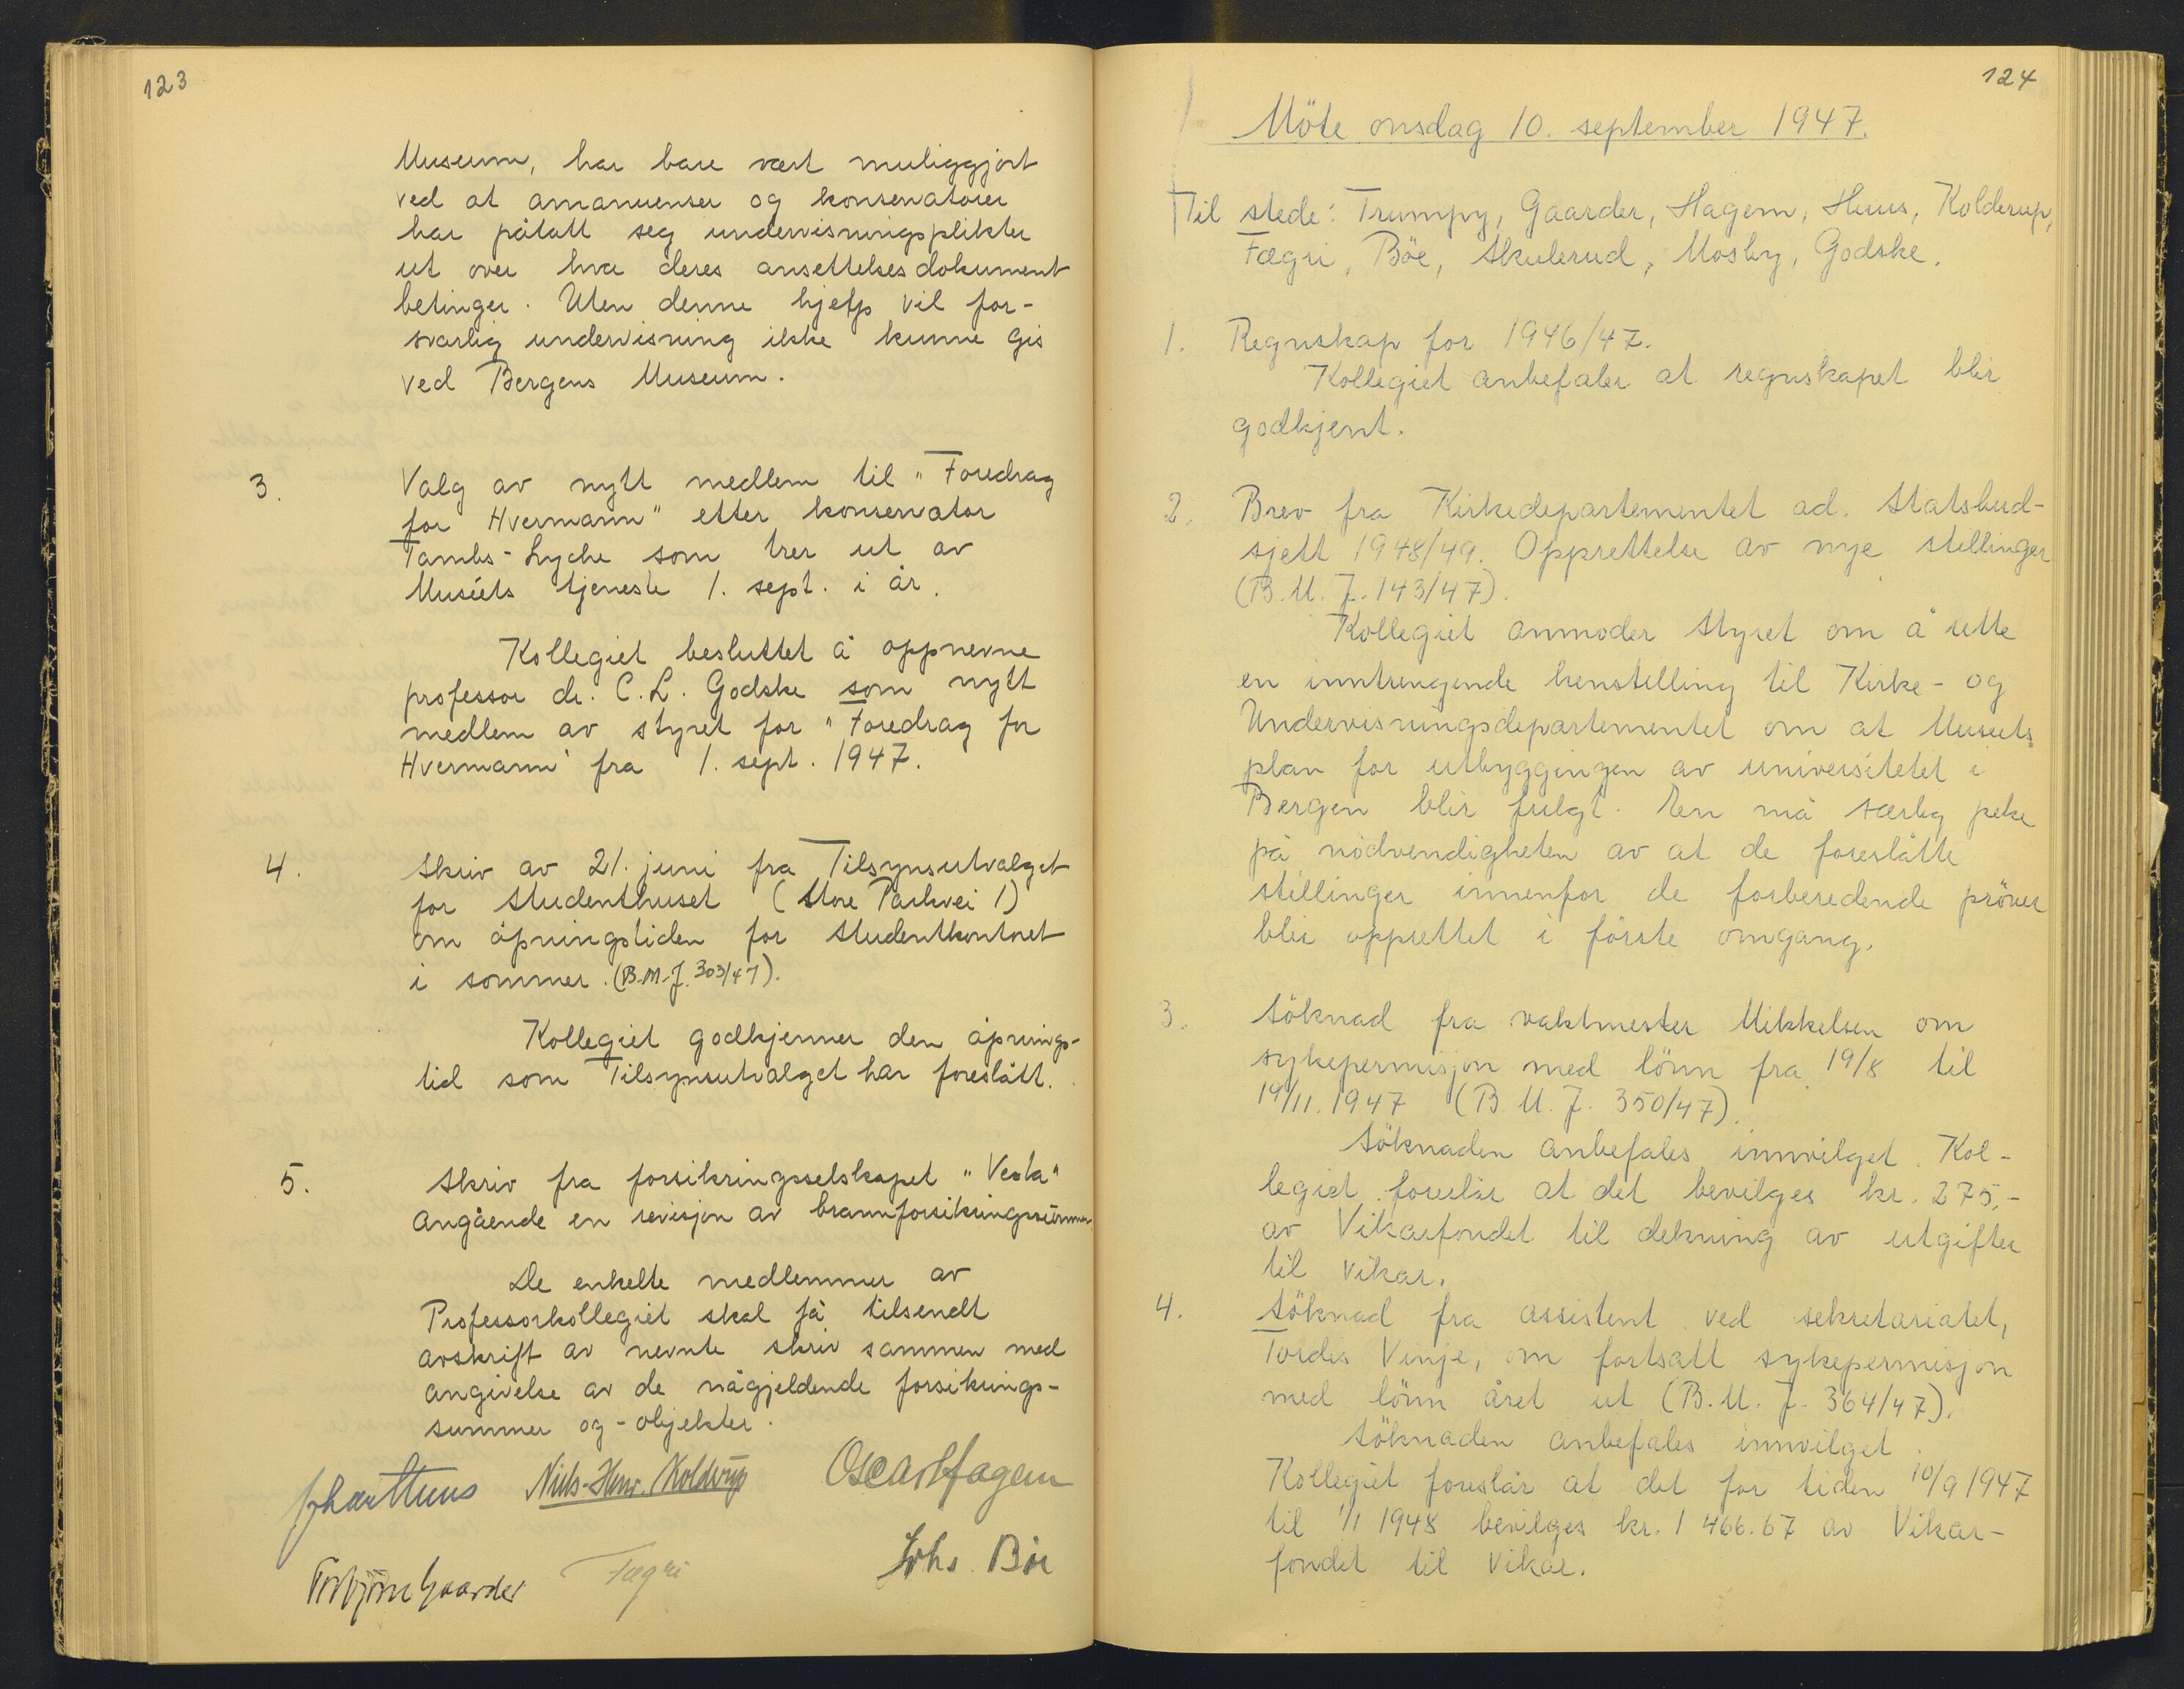 123
Museum, har bare vært muliggjort
ved at amanuenser og konservatorer
har påtatt seg undervisningsplikter
ut over hva deres ansettelsesdokument
betinger. Uten denne hjelp vil for-
svarlig undervisning ikke kunne gis
ved Bergens Museum.
3. Valg av nytt medlem til "Foredrag
for Hvermann" etter konservator
Tambs-Lyche som trer ut av
Muséets tjeneste 1. sept. i år.
Kollegiet besluttet å oppnevne
professor dr. C. L. Godske som nytt
medlem av styret for "Foredrag for
Hvermann" fra 1. sept. 1947.
4. Skriv av 21. juni fra Tilsynsutvalget
for Studenthuset (Store Parkvei 1)
om åpningstiden for Studentkontoret
i sommer. (B.M.J. 303/47).
Kollegiet godkjenner den åpnings-
tid som Tilsynsutvalget har foreslått.
5. Skriv fra forsikringsselskapet "Vesta"
angående en revisjon av brannforsikringssummer.
De enkelte medlemmer av
Professorkollegiet skal få tilsendt
avskrift av nevnte skriv sammen med
angivelse av de någjeldende forsikrings-
summer og -objekter.
Niels-Henr. Kolderup Oscar Hagem
Torbjörn Gaarder Fægri Johs. Böe
124
Möte onsdag 10. september 1947.
Til stede: Trumpy, Gaarder, Hagem, Huus, Kolderup,
Fægri, Böe, Skulerud, Mosby, Godske.
1. Regnskap for 1946/47.
Kollegiet anbefaler at regnskapet blir
godkjent.
2. Brev fra Kirkedepartementet ad. Statsbud-
sjett 1948/49. Opprettelse av nye stillinger
(B.M.J. 143/47).
Kollegiet anmoder Styret om å rette
en inntrengende henstilling til Kirke- og
Undervisningsdepartementet om at Museets
plan for utbyggingen av universitetet i
Bergen blir fulgt. En må særlig peke
på nödvendigheten av at de foreslåtte
stillinger innenfor de forberedende pröver
blir opprettet i förste omgang.
3. Söknad fra vaktmester Mikkelsen om
sykepermisjon med lönn fra 19/8 til
19/11. 1947 (B.M.J. 350/47).
Söknaden anbefales innvilget. Kol-
legiet foreslår at det bevilges kr. 275,-
av Vikarfondet til dekning av utgifter
til vikar.
4. Söknad fra assistent ved sekretariatet,
Tordis Vinje, om fortsatt sykepermisjon
med lönn året ut (B.M.J. 364/47).
Söknaden anbefales innvilget.
Kollegiet foreslår at det for tiden 10/9 1947
til 1/1 1948 bevilges kr. 1 466.67 av Vikar-
fondet til vikar.